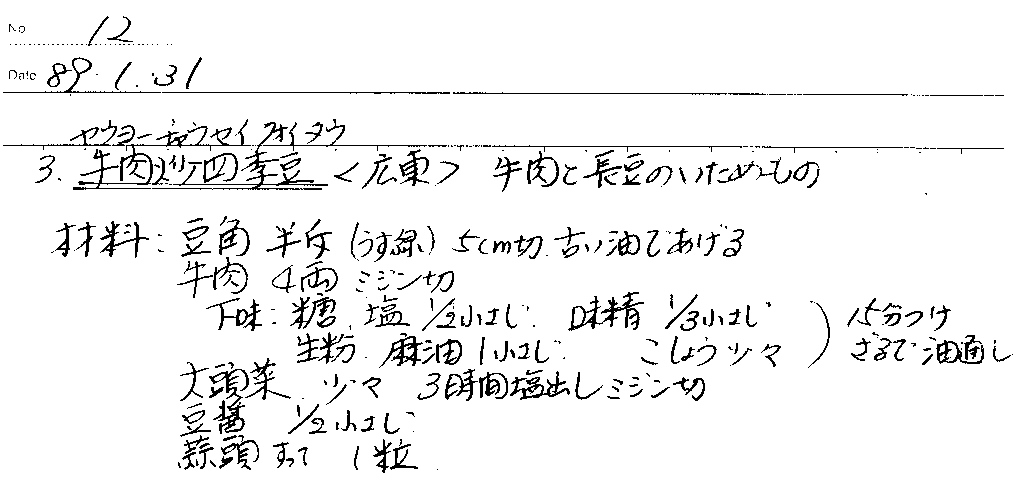 No 12
Date 89.1.31
ヤウヨーチャウセイクオイタウ
3. 牛肉炒四季豆 <広東> 牛肉と長豆のいためもの
材料: 豆角 半斤 (うす緑) 5cm切 古い油であげる
牛肉 4両 ミジン切
下味: 糖、塩 1/2小さじ 味精 1/3小さじ ) 15分つけ
生粉 麻油 1小さじ こしょう少々 ざるで油通し
大頭菜 少々 3時間塩出しミジン切
豆醤 1/2小さじ
蒜頭 すって 1粒